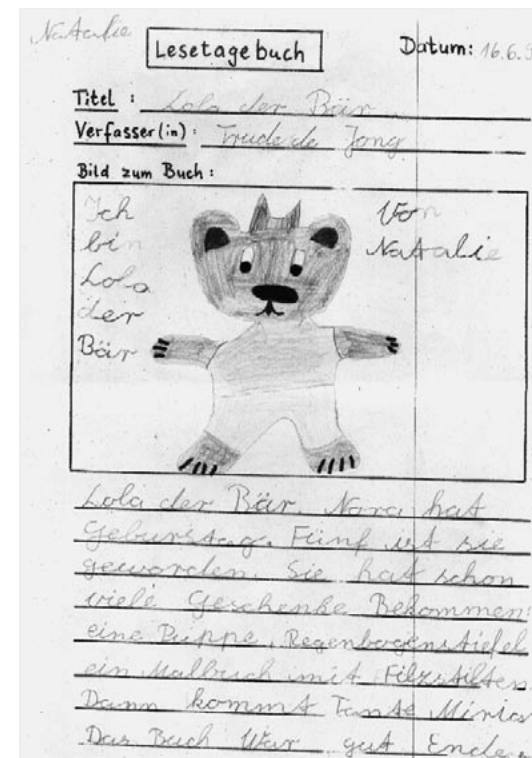 Natalie
Lesetagebuch
Datum: 16.6.9
Titel : Lola der Bär
Verfasser(in): Trude de Jong
Bild zum Buch:
Ich
bin
Lola
der
Bär
Von
Natalie
Lola der Bär. Nora hat
Geburstag. Fünf ist sie
geworden. Sie hat schon
viele Geschenke Bekommen:
eine Puppe, Regenbogenstiefel
ein Malbuch mit Filzstilten
Dann kommt Tante Miriam
Das Buch War gut Ende.